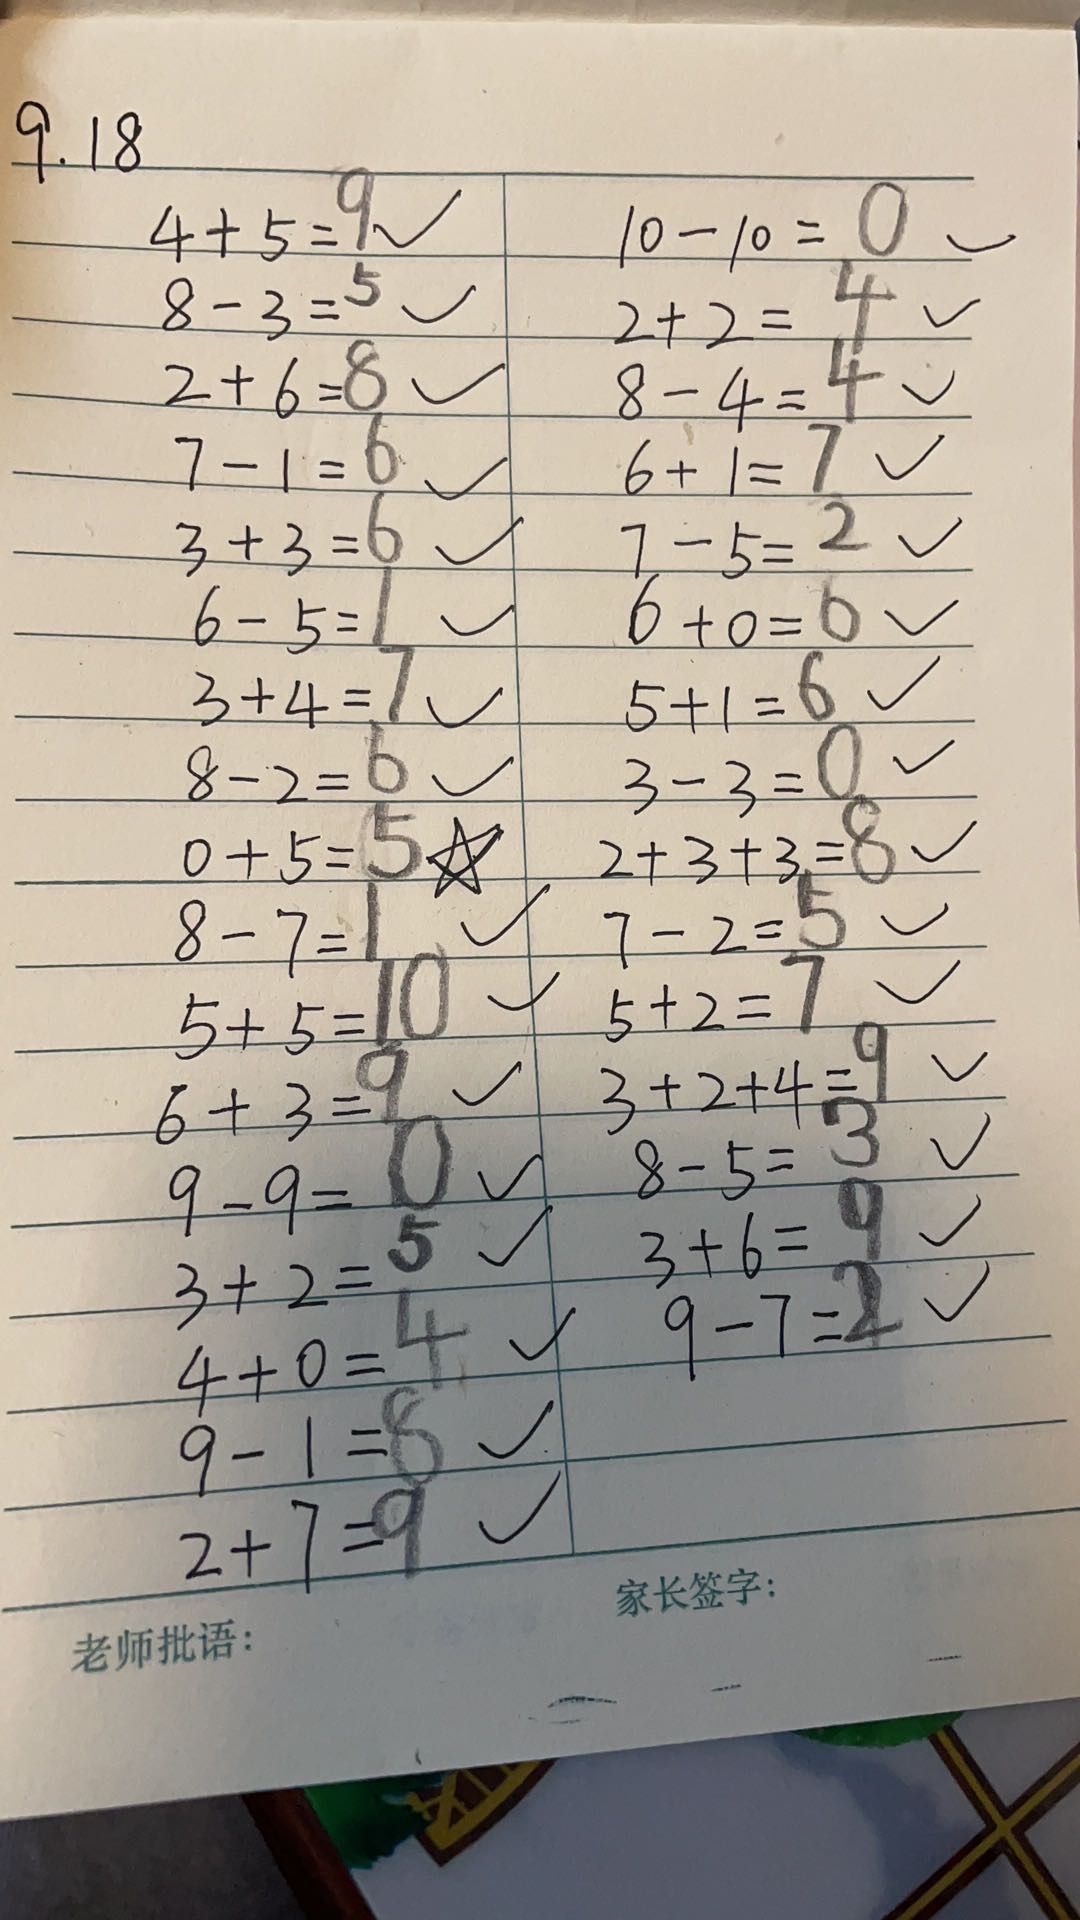 9.18
4+5=9✓
8-3=5✓
2+6=8✓
7-1=6✓
3+3=6✓
6-5=1✓
3+4=7✓
8-2=6✓
0+5=5☆
8-7=1✓
5+5=10✓
6+3=9✓
9-9=0✓
3+2=5✓
4+0=4✓
9-1=8✓
2+7=9✓
10-10=0✓
2+2=4✓
8-4=4✓
6+1=7✓
7-5=2✓
6+0=6✓
5+1=6✓
3-3=0✓
2+3+3=8✓
7-2=5✓
5+2=7✓
3+2+4=9✓
8-5=3✓
3+6=9✓
9-7=2✓
老师批语:
家长签字: